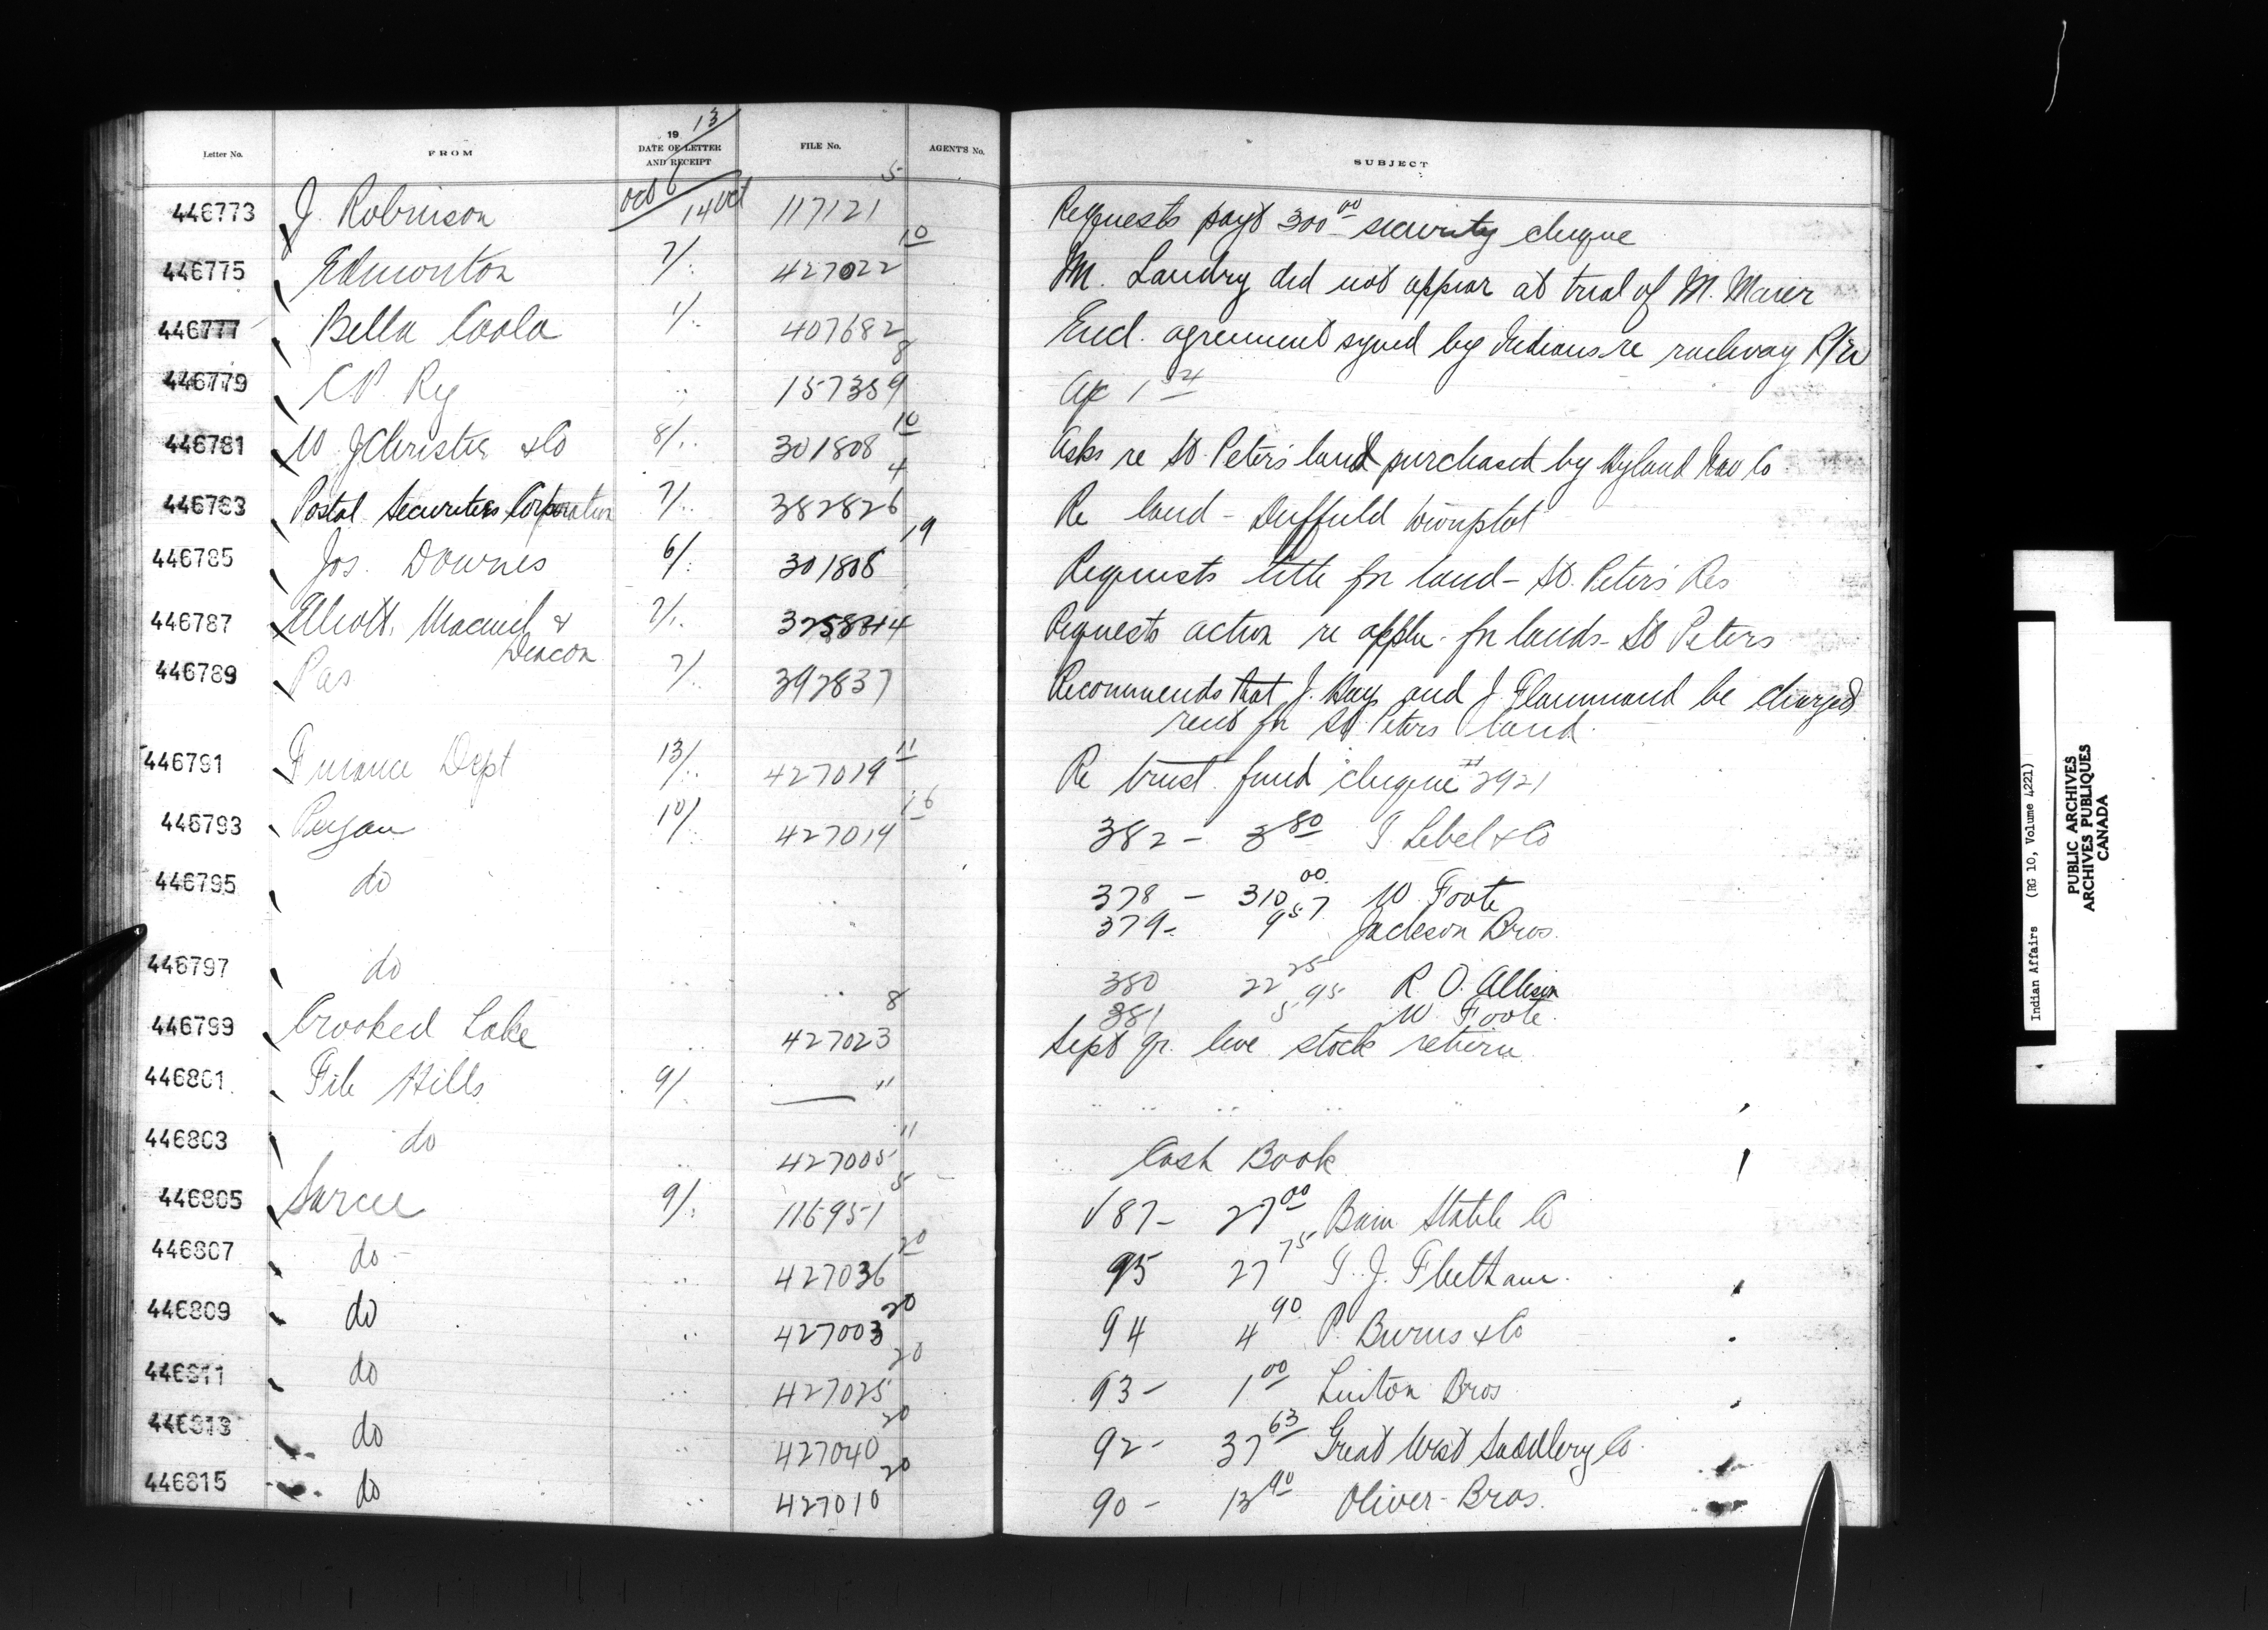 Letter No. FROM 19 13 DATE OF LETTER AND RECEIPT FILE No. AGENT'S No. SUBJECT
446773 J. Robinson Oct 6 / 14 Oct 117121 5 Requests payt 300 00 security cheque
446775 Edmonton 7/. 427022 10 M. Landry did not appear at trial of M. Maier
446777 Bella Coola 1/. 407682 Encl. agreement signed by Indians re railway R/W
446779 C P. Ry " 157359 8
446781 W J Christie & Co 8/.. 301808 10 Asks re St. Peter's land purchased by Hyland Nav Co
446783 Postal Securities Corporation 7/. 382826 4 Re land - Duffield townplot
446785 Jos. Downes 6/. 301808 19 Requests title for land - St. Peter's Res
446787 Elliott, Macneil & Deacon 7/. Requests action re appln. for lands - St Peters
446789 Pas 7/. 392837 Recommends that J. Hay and J Flammand be charged
rent for St Peters land.
446791 Finance Dept 13/. 427019 11 Re trust fund cheque # 2921
446793 Peigan 10/ 427014 16 382 - 3 80 T. Lebel & Co
446795 do " " 378 - 310 00 W Foote
379 - 9 57 Jackson Bros.
446797 do " " 380 22 25 R O. Allison
381 5 95 W. Foote.
446799 Crooked Lake " 427023 8 Sept qr. live stock return
446801 File Hills 9/. — " " " " " "
446803 do " 427005 " " Cash Book
446805 Sarcee 9/. 116951 5 √ 87 - 27 00 Bain Stable Co
446807 do - " 427036 20 95 27 75 T. J. Fleetham.
446809 do " 427003 20 94 4 90 P. Burns & Co
446811 do " 427025 20 93 - 1 00 Linton Bros
446813 do " 427040 20 92 - 37 63 Great West Saddlery Co.
446815 do " 427010 20 90 - 13 90 Oliver - Bros.
Indian Affairs (RG 10, Volume 4221)
PUBLIC ARCHIVES
ARCHIVES PUBLIQUES
CANADA